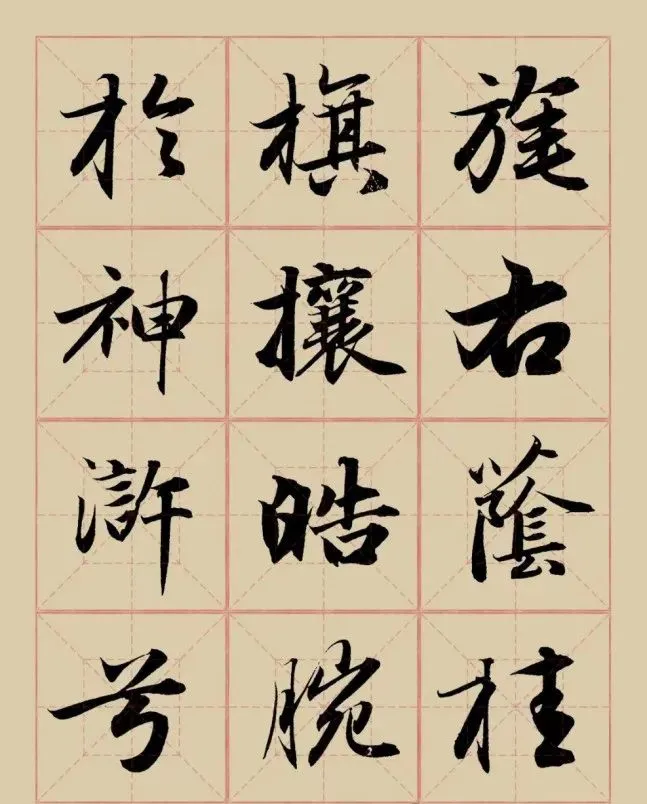 旌右蔭桂
旗攘皓腕
於神滸兮